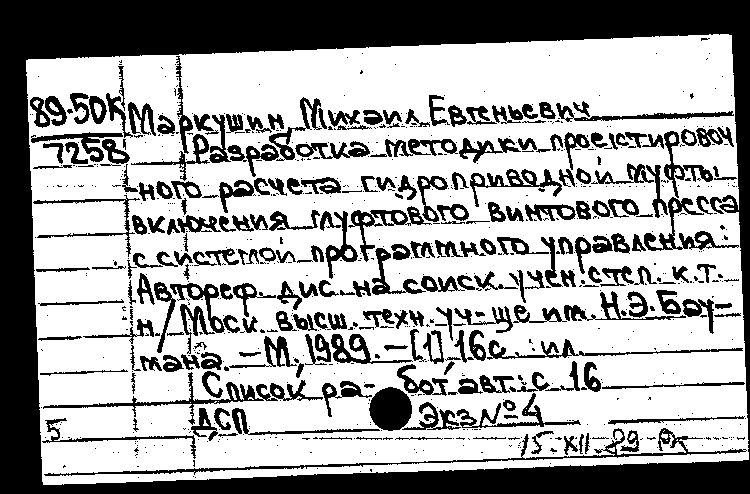 89-50К Маркушин, Михаил Евгеньевич
7258 Разработка методики проектировоч
-ного расчета гидроприводной муфты
включения муфтового винтового пресса
с системой программного управления:
Автореф. дис. на соиск. учен. степ. к.т.
н. / Моск. высш. техн. уч-ще им. Н.Э. Бау-
мана. - М., 1989. - [1] 16с. : ил.
Список ра- бот авт.: с. 16
ДСП Экз №4
5
15.XII.89 РК